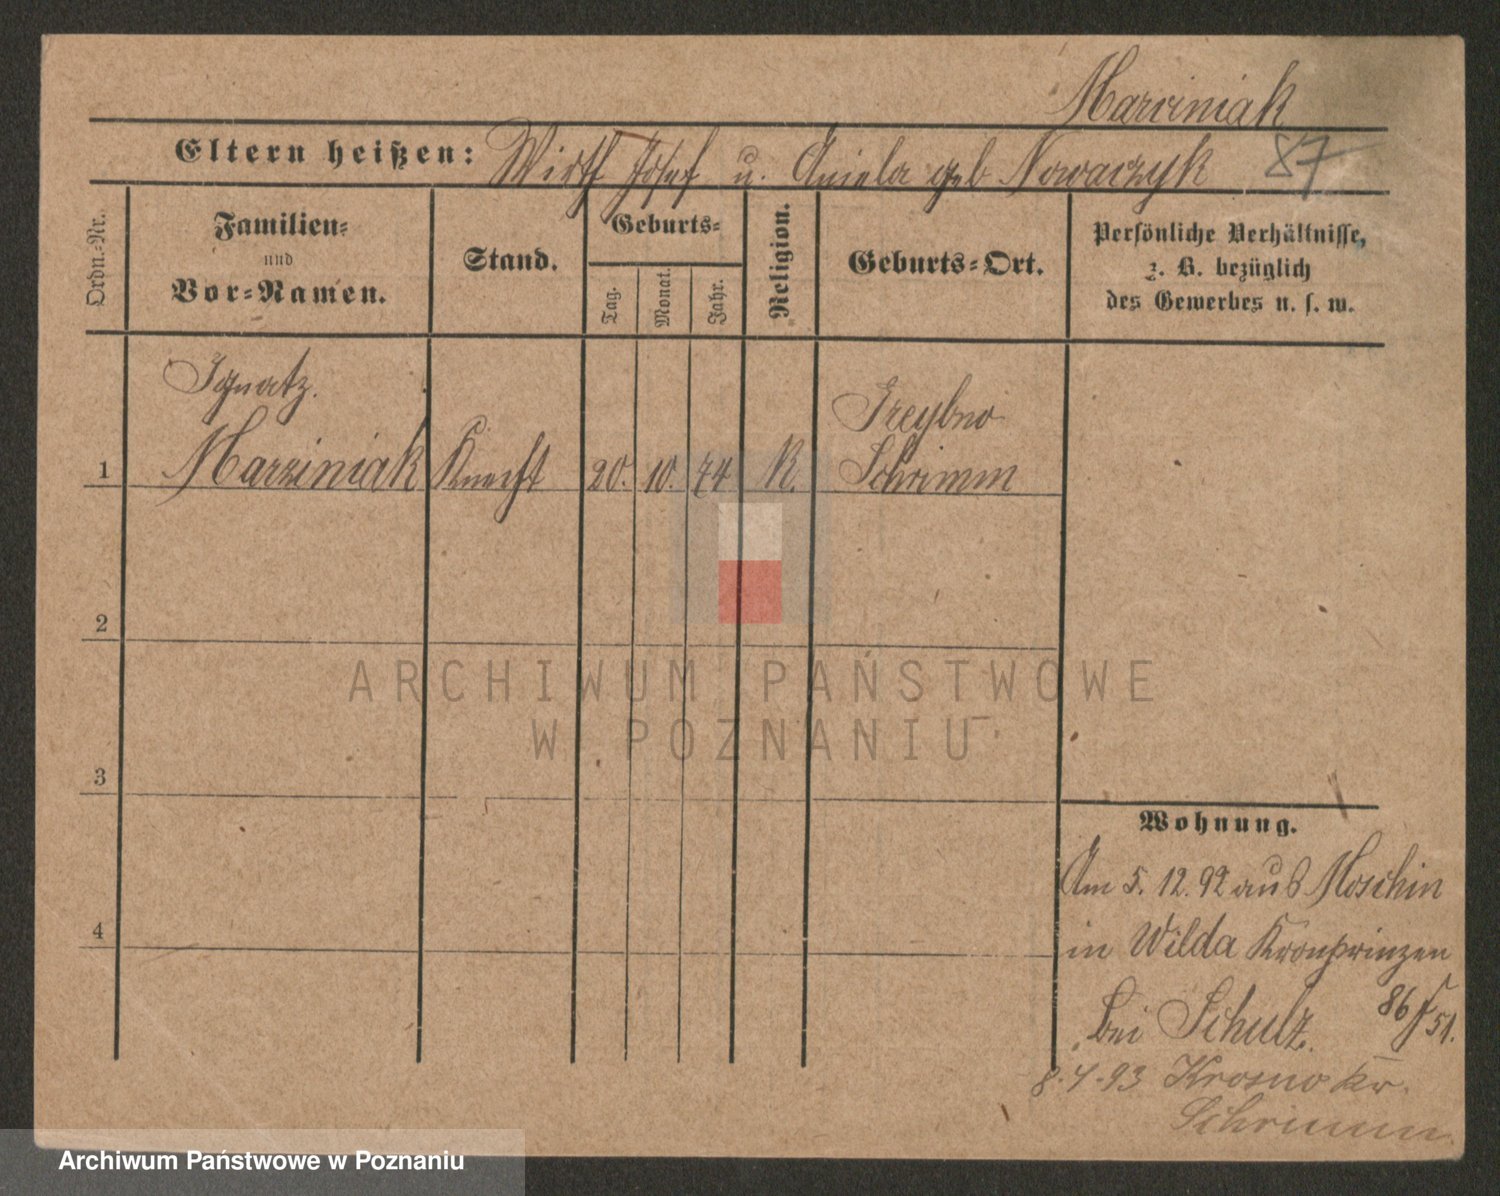 Marciniak
Eltern heißen: Wirth Josef u. Aniela geb Nowaczyk 87
Ordn.-Nr.
Familien-
und
Vor-Namen.
Stand.
Geburts-
Tag.
Monat.
Jahr.
Religion.
Geburts-Ort.
Persönliche Verhältnisse,
z. B. bezüglich
des Gewerbes u. s. w.
Ignatz.
1 Marziniak Knecht 20. 10. 74 K.
Schrimm
2
3
4
Wohnung.
Am 5. 12. 92 aus Moschin
in Wilda Kronprinzen
bei Schulz. 86 51.
8.4.93 Krosno Kr.
Schrimm
ARCHIWUM PAŃSTWOWE
W POZNANIU
Archiwum Państwowe w Poznaniu